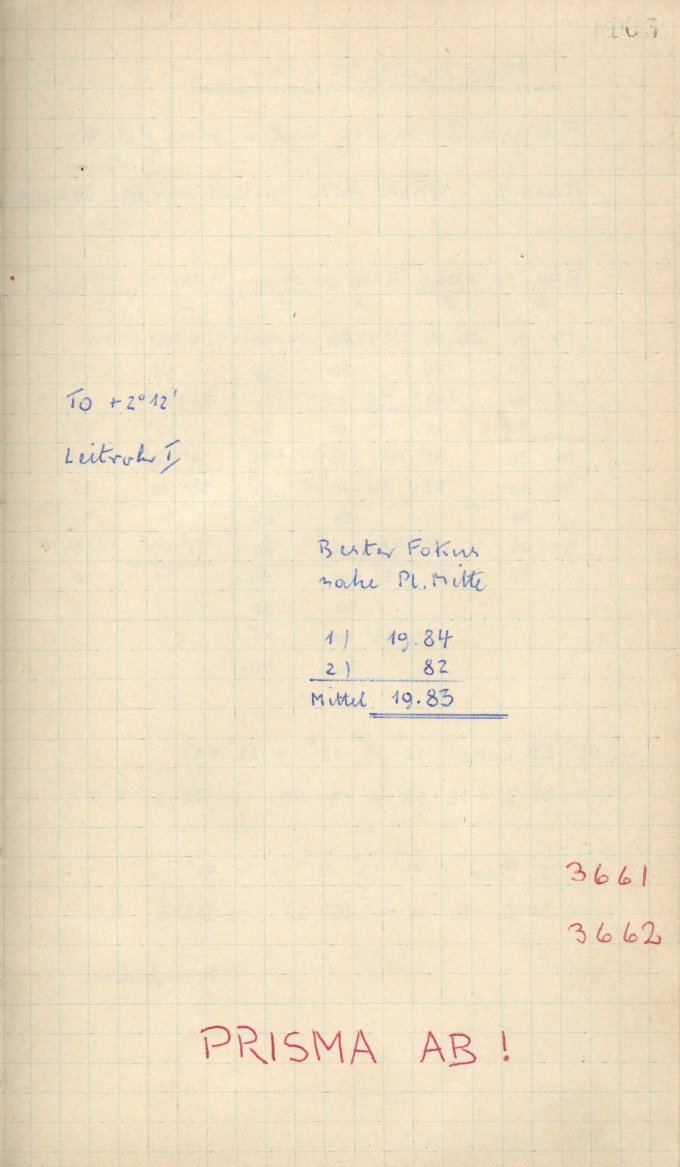 T0 + 2° 12'
Leitrohr I
Bester Fokus
nahe Pl. Mitte
1) 19.84
2) 82
Mittel 19.83
3661
3662
PRISMA AB!